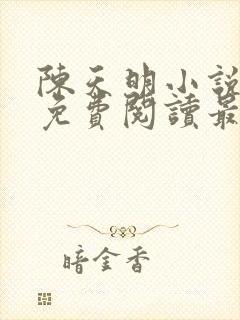 陳天明小說
免費閱讀最
暗金香